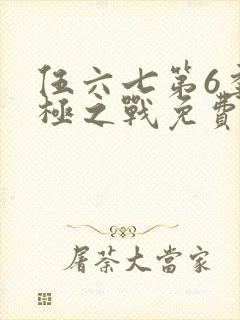 伍六七第6季
極之戰免費
屠荼大當家